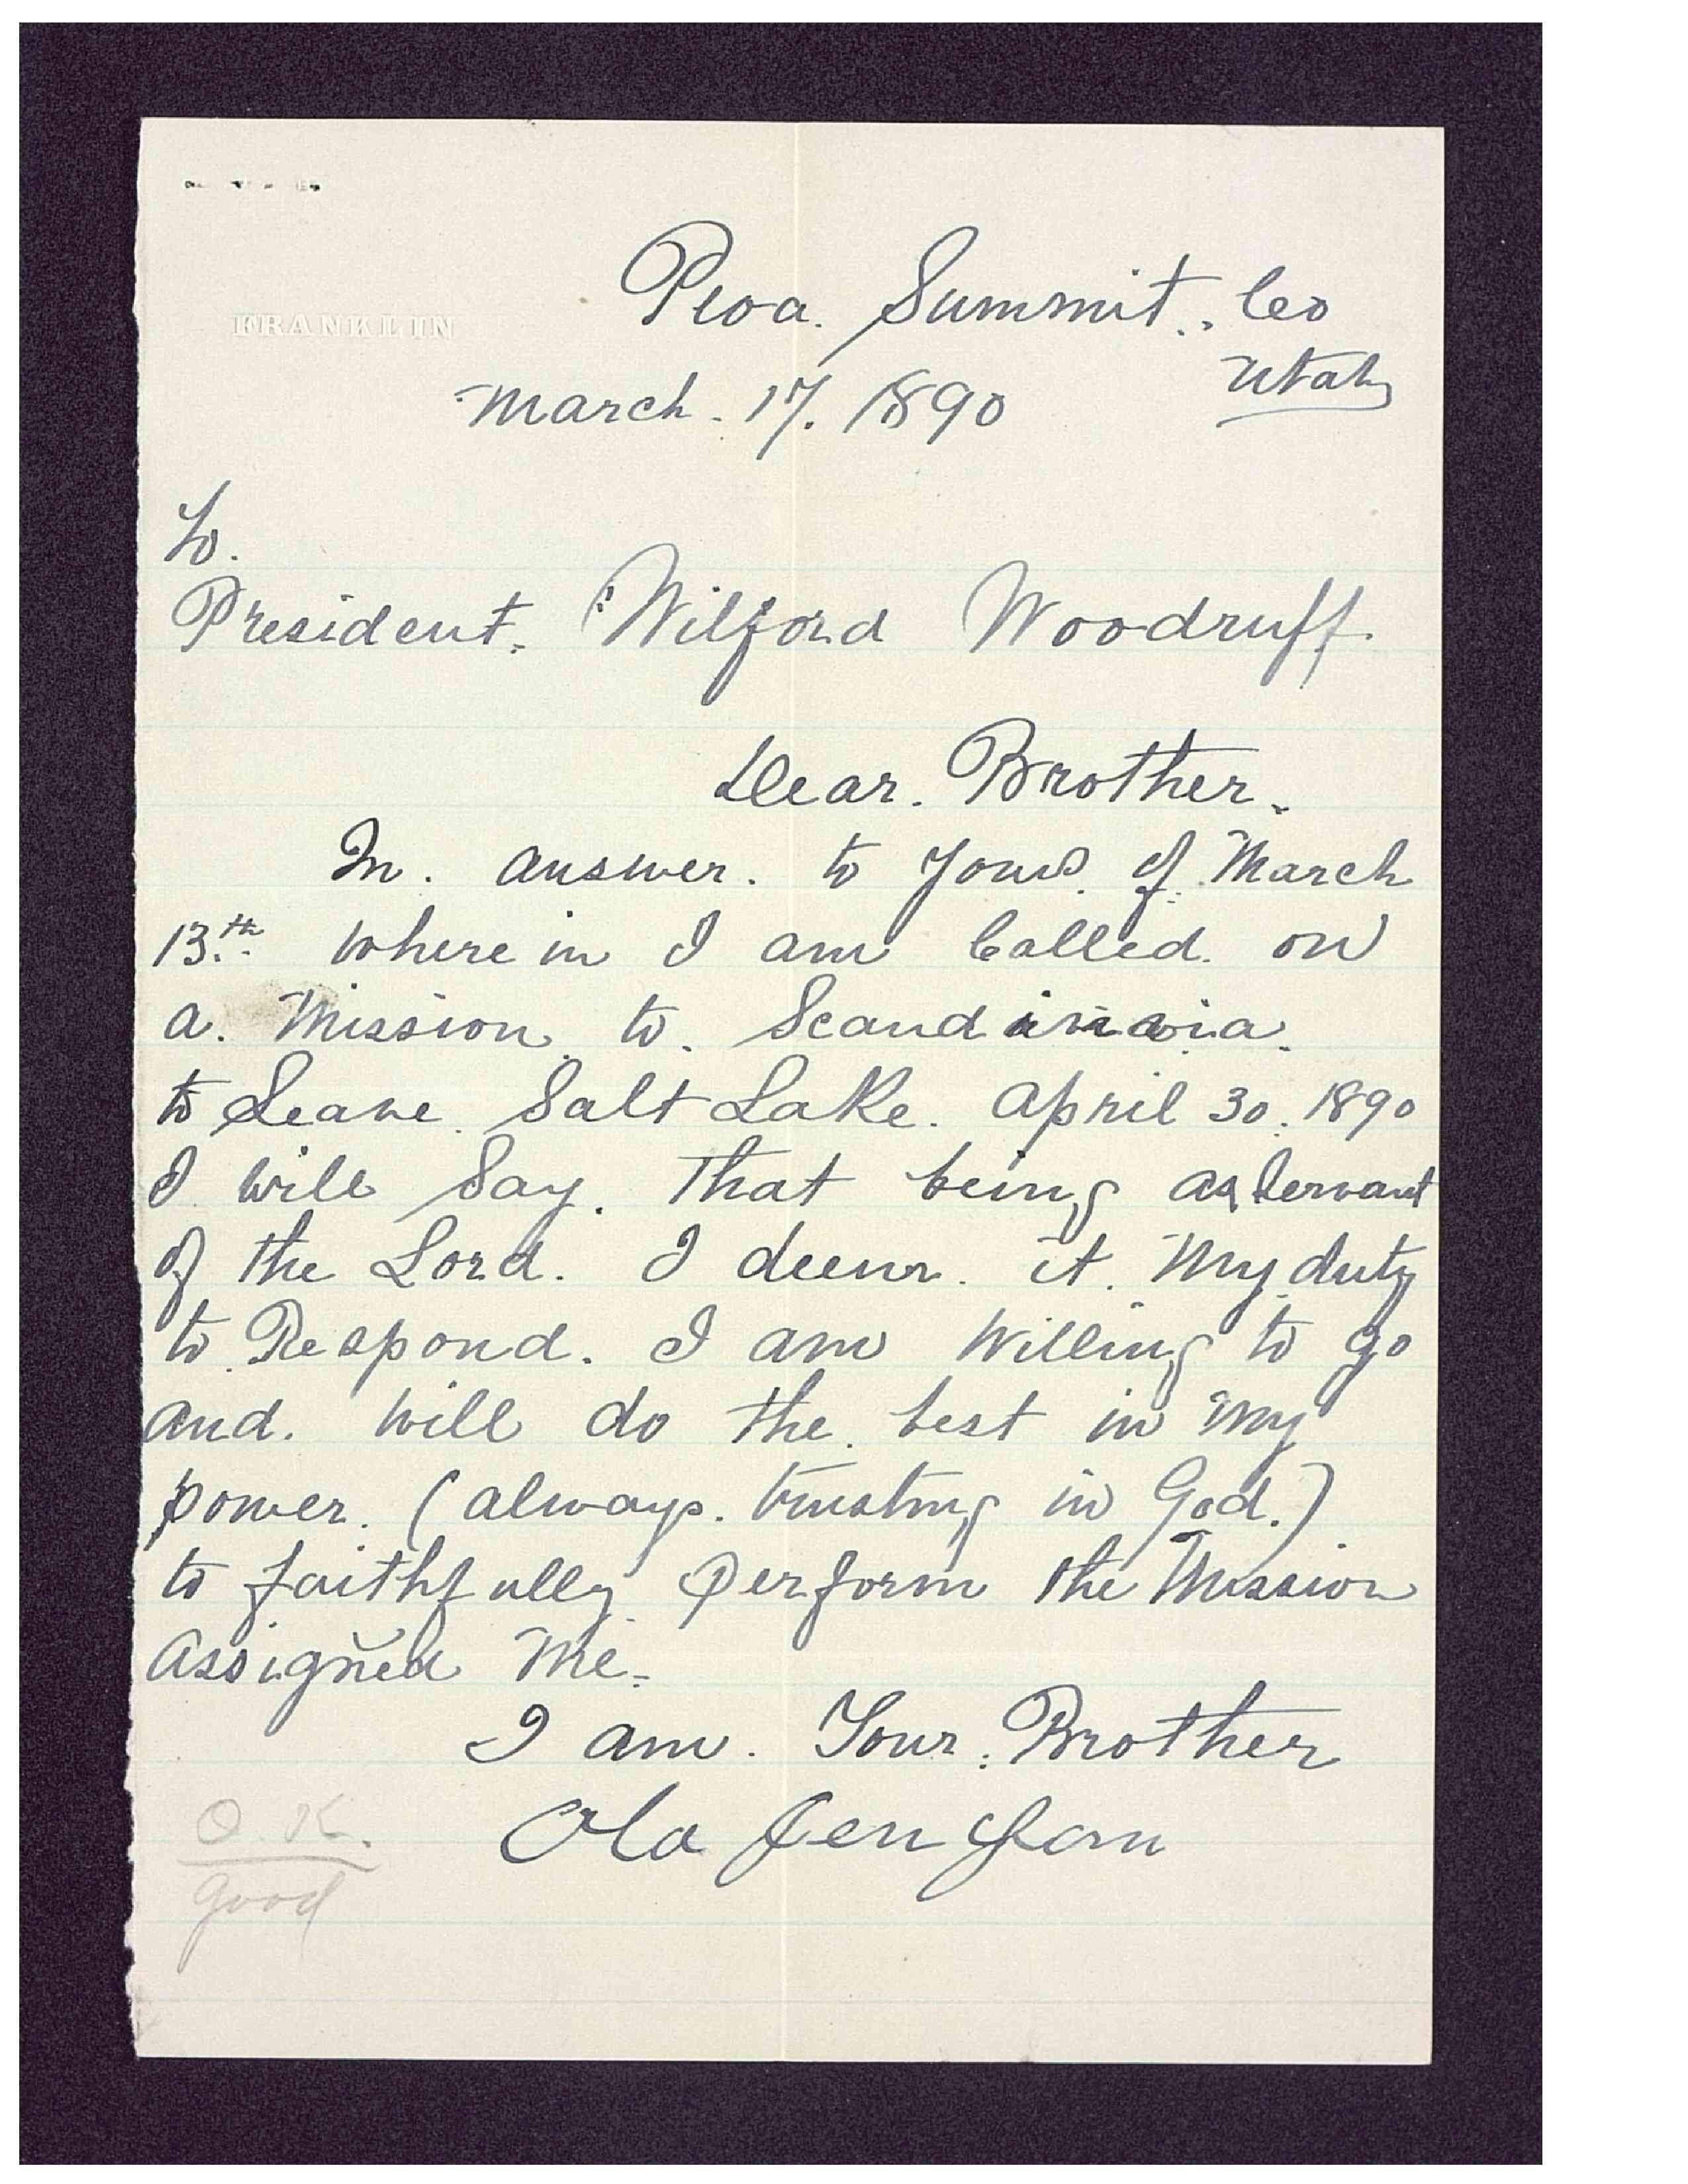 FRANKLIN
Peoa. Summit. Co
Utah
March. 17. 1890
To.
President. Wilford Woodruff.
Dear. Brother.
In. answer. to Yours. of. March
13.th Wherein I am Called. on
a. Mission. to. Scandinavia.
to Leave. Salt Lake. April 30. 1890
I will Say. That being as Servant
of the Lord. I deem. it. My duty
to Respond. I am Willing to go
and. Will do the. best in My
power. (always. trusting in God.)
to faithfully Perform the Mission
Assigned Me.
I am. Your. Brother
Ola Jenson
O.K.
good